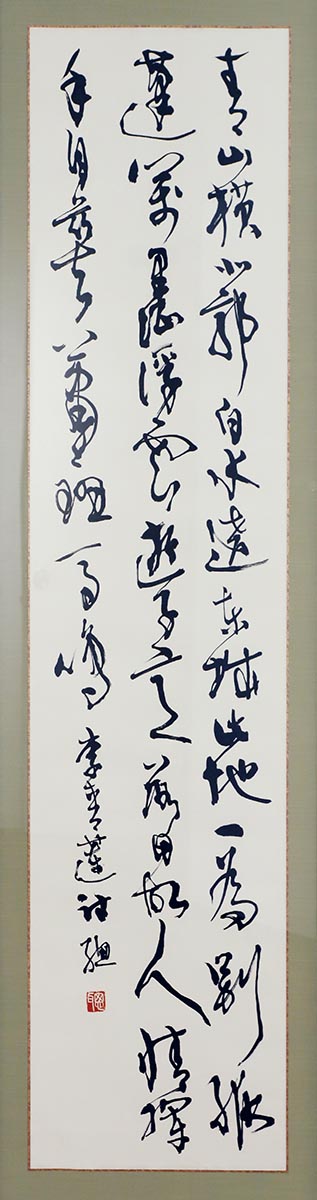 青山橫北郭白水遶東城此地一為別孤
蓬萬里征浮雲遊子意落日故人情揮
手自茲去蕭〻班馬鳴 李青蓮詩